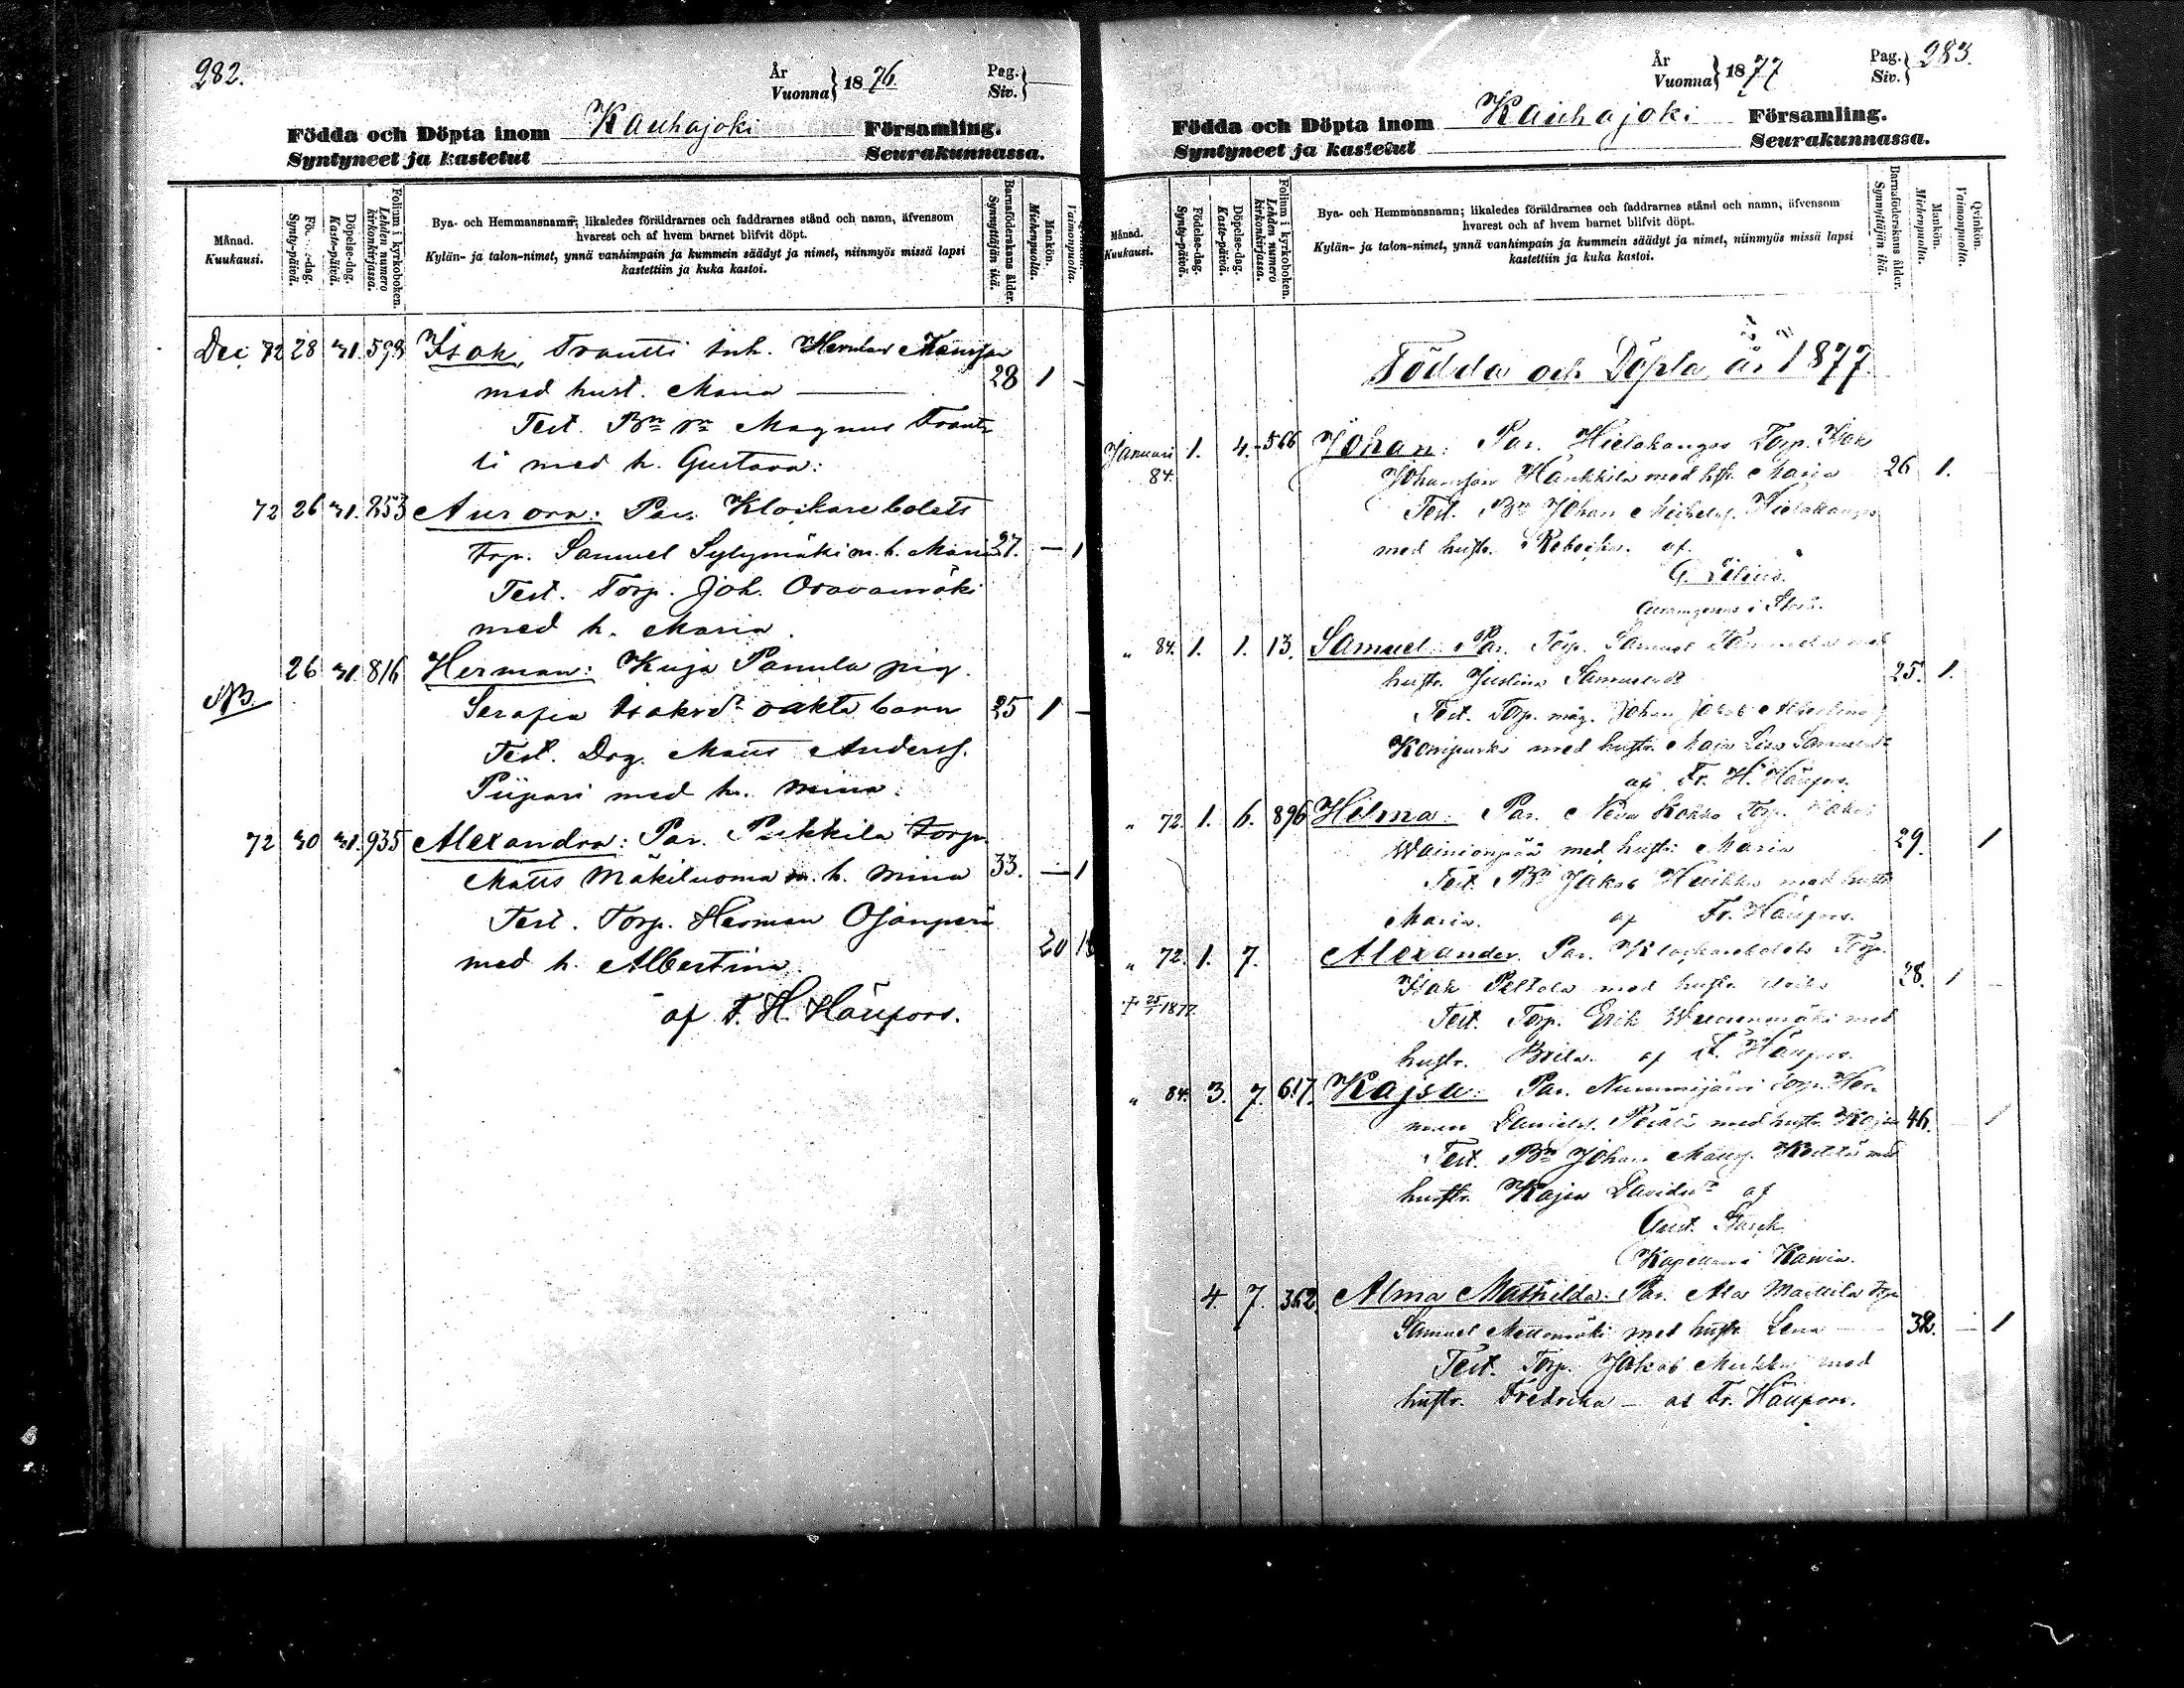 282.
År
Vuonna } 1876
Pag.
Siv. }
Födda och Döpta inom Kauhajoki Församling.
Syntyneet ja kastetut Seurakunnassa.
Månad.
Kuukausi.
Födelse-dag.
Synty-päivä.
Döpelse-dag.
Kaste-päivä.
Folium i kyrkoboken.
Lehden numero
kirkonkirjassa.
Bya- och Hemmansnamn; likaledes föräldrarnes och faddrarnes stånd och namn, äfvensom
hvarest och af hvem barnet blifvit döpt.
Kylän- ja talon-nimet, ynnä vanhimpain ja kummein säädyt ja nimet, niinmyös missä lapsi
kastettiin ja kuka kastoi.
Barnaföderskans ålder.
Synnyttäjän ikä.
Mankön.
Miehenpuolta.
Vaimonpuolta.
Dec. 72 28 31. 593 Isak, Trantti Inh. Herman
med hust. Maria 28 1 -
Test. Bn Sn Magnus Trant-
ti med h. Gustava:
72 26 31. 853 Aurora: Par. Klockarebolets
Torp. Samuel Sylymäki m. h. Maria 27. - 1
Test. Torp. Joh. Oravamäki
med h. Maria.
26 31. 816 Herman: Kuja Panula pig.
NB. Serafia Isaksdr oäkta barn 25 1 -
Test. Drg. Matts Anderss.
Piipari med h. Mina.
72 30 31. 935 Alexandra: Par. Pukkila torp.
Matts Mäkiluoma m. h. Mina 33. - 1
Test. Torp. Herman Ojanperä
med h. Albertina. 20 18
af F. H. Häufors.
År
Vuonna } 1877
Pag.
Siv. } 283.
Födda och Döpta inom Kauhajoki Församling.
Syntyneet ja kastetut Seurakunnassa.
Månad.
Kuukausi.
Födelse-dag.
Synty-päivä.
Döpelse-dag.
Kaste-päivä.
Folium i kyrkoboken.
Lehden numero
kirkonkirjassa.
Bya- och Hemmansnamn; likaledes föräldrarnes och faddrarnes stånd och namn, äfvensom
hvarest och af hvem barnet blifvit döpt.
Kylän- ja talon-nimet, ynnä vanhimpain ja kummein säädyt ja nimet, niinmyös missä lapsi
kastettiin ja kuka kastoi.
Barnaföderskans ålder.
Synnyttäjän ikä.
Mankön.
Miehenpuolta.
Qvinkön.
Vaimonpuolta.
Födda och Döpta år 1877.
Januari 1. 4. 566 Johan: Par. Hietakangas Torp. Isak
84. Johansson Hankkila med hstr. Maria 26 1.
Test. Bn Johan Michelss. Hietakangas
med hustr. Rebecka. af
G. Lilius.
" 84. 1. 1. 13. Samuel: Par. Torp. Samuel med
hustr. Justina Samuelsdr 25. 1.
Test. Torp. måg. Johan Jakob
med hustr. Maja Lisa Samuelsdr
af Fr. H. Häufors.
" 72. 1. 6. 896 Hilma: Par. Neva Kokko Torp.
Wainionpää med hustr. Maria 29. 1
Test. Bn Jakob med hustr.
Maria. af Fr. Häufors.
" 72. 1. 7. Alexander. Par. Klockarebolets Torp.
† 25/1 1877. Isak Peltola med hustr. 28. 1
Test. Torp. Erik med
hustr. Brita. af F. Häufors.
" 84. 3. 7. 617. Kajsa: Par. Nummijärvi Torp. Her-
man Daniels. med hustr. Kajsa 46. - 1
Test. Bn Johan Matts. med
hustr. Kajsa Davidsdr af
Gust. Starck
Kapellan i
4. 7. 362 Alma Mathilda: Par. Ala Marttila Torp.
Samuel Mettomäki med hustr. Lena - 32. - 1
Test. Torp. Jakob med
hustr. Fredrika - af Fr. Häufors.